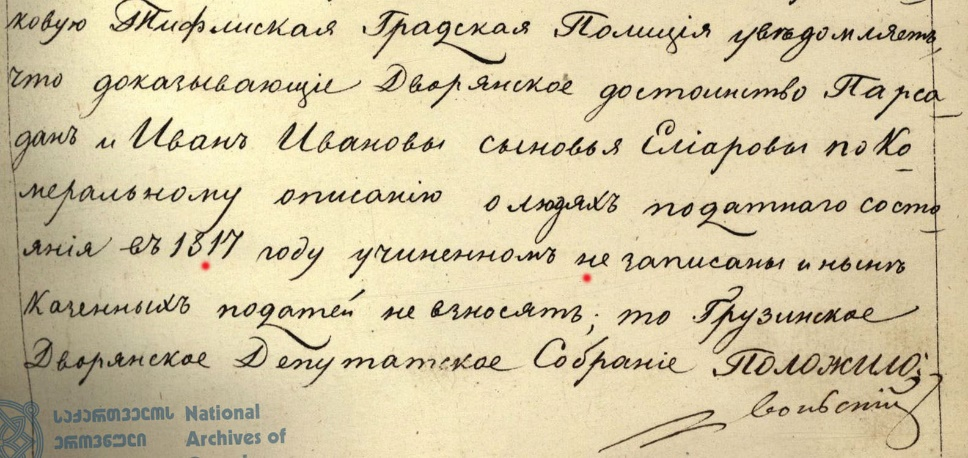 ковую Тифлиская Градская Полиція увѣдомляетъ,
что доказывающіе Дворянское достоинство Парса-
данъ и Иванъ Ивановы сыновья Еліаровы по Ка-
меральному описанію о людяхъ податнаго состо-
янія въ 1817 году учиненномъ не записаны и нынѣ
Казенныхъ податей не взносятъ; то Грузинское
Дворянское Депутатское Собраніе Положило:
საქართველოს National
ეროვნული Archives of